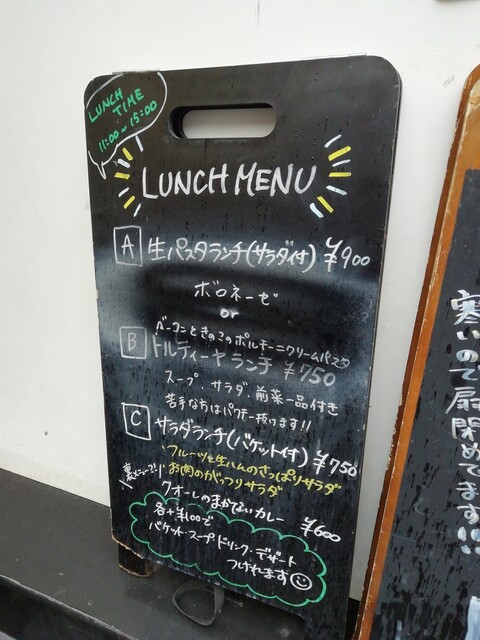 LUNCH
TIME
11:00~15:00
LUNCH MENU
A 生パスタランチ(サラダ付) ¥900
ボロネーゼ
or
ベーコンときのこのポルチーニクリームパスタ
B トルティーヤランチ ¥750
スープ、サラダ、前菜一品付き
苦手な方はパクチー抜けます!!
C サラダランチ(バケット付) ¥750
フルーツと生ハムのさっぱりサラダ
お肉のがっつりサラダ
裏メニュー!!
クオーレのまかないカレー ¥600
各+¥100で
バケット・スープ・ドリンク・デザート
つけれます
寒いので扉閉めてます!!